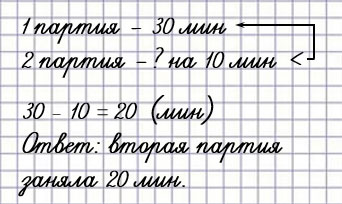 1 партия – 30 мин
2 партия – ? на 10 мин <
30 – 10 = 20 (мин)
Ответ: вторая партия
заняла 20 мин.